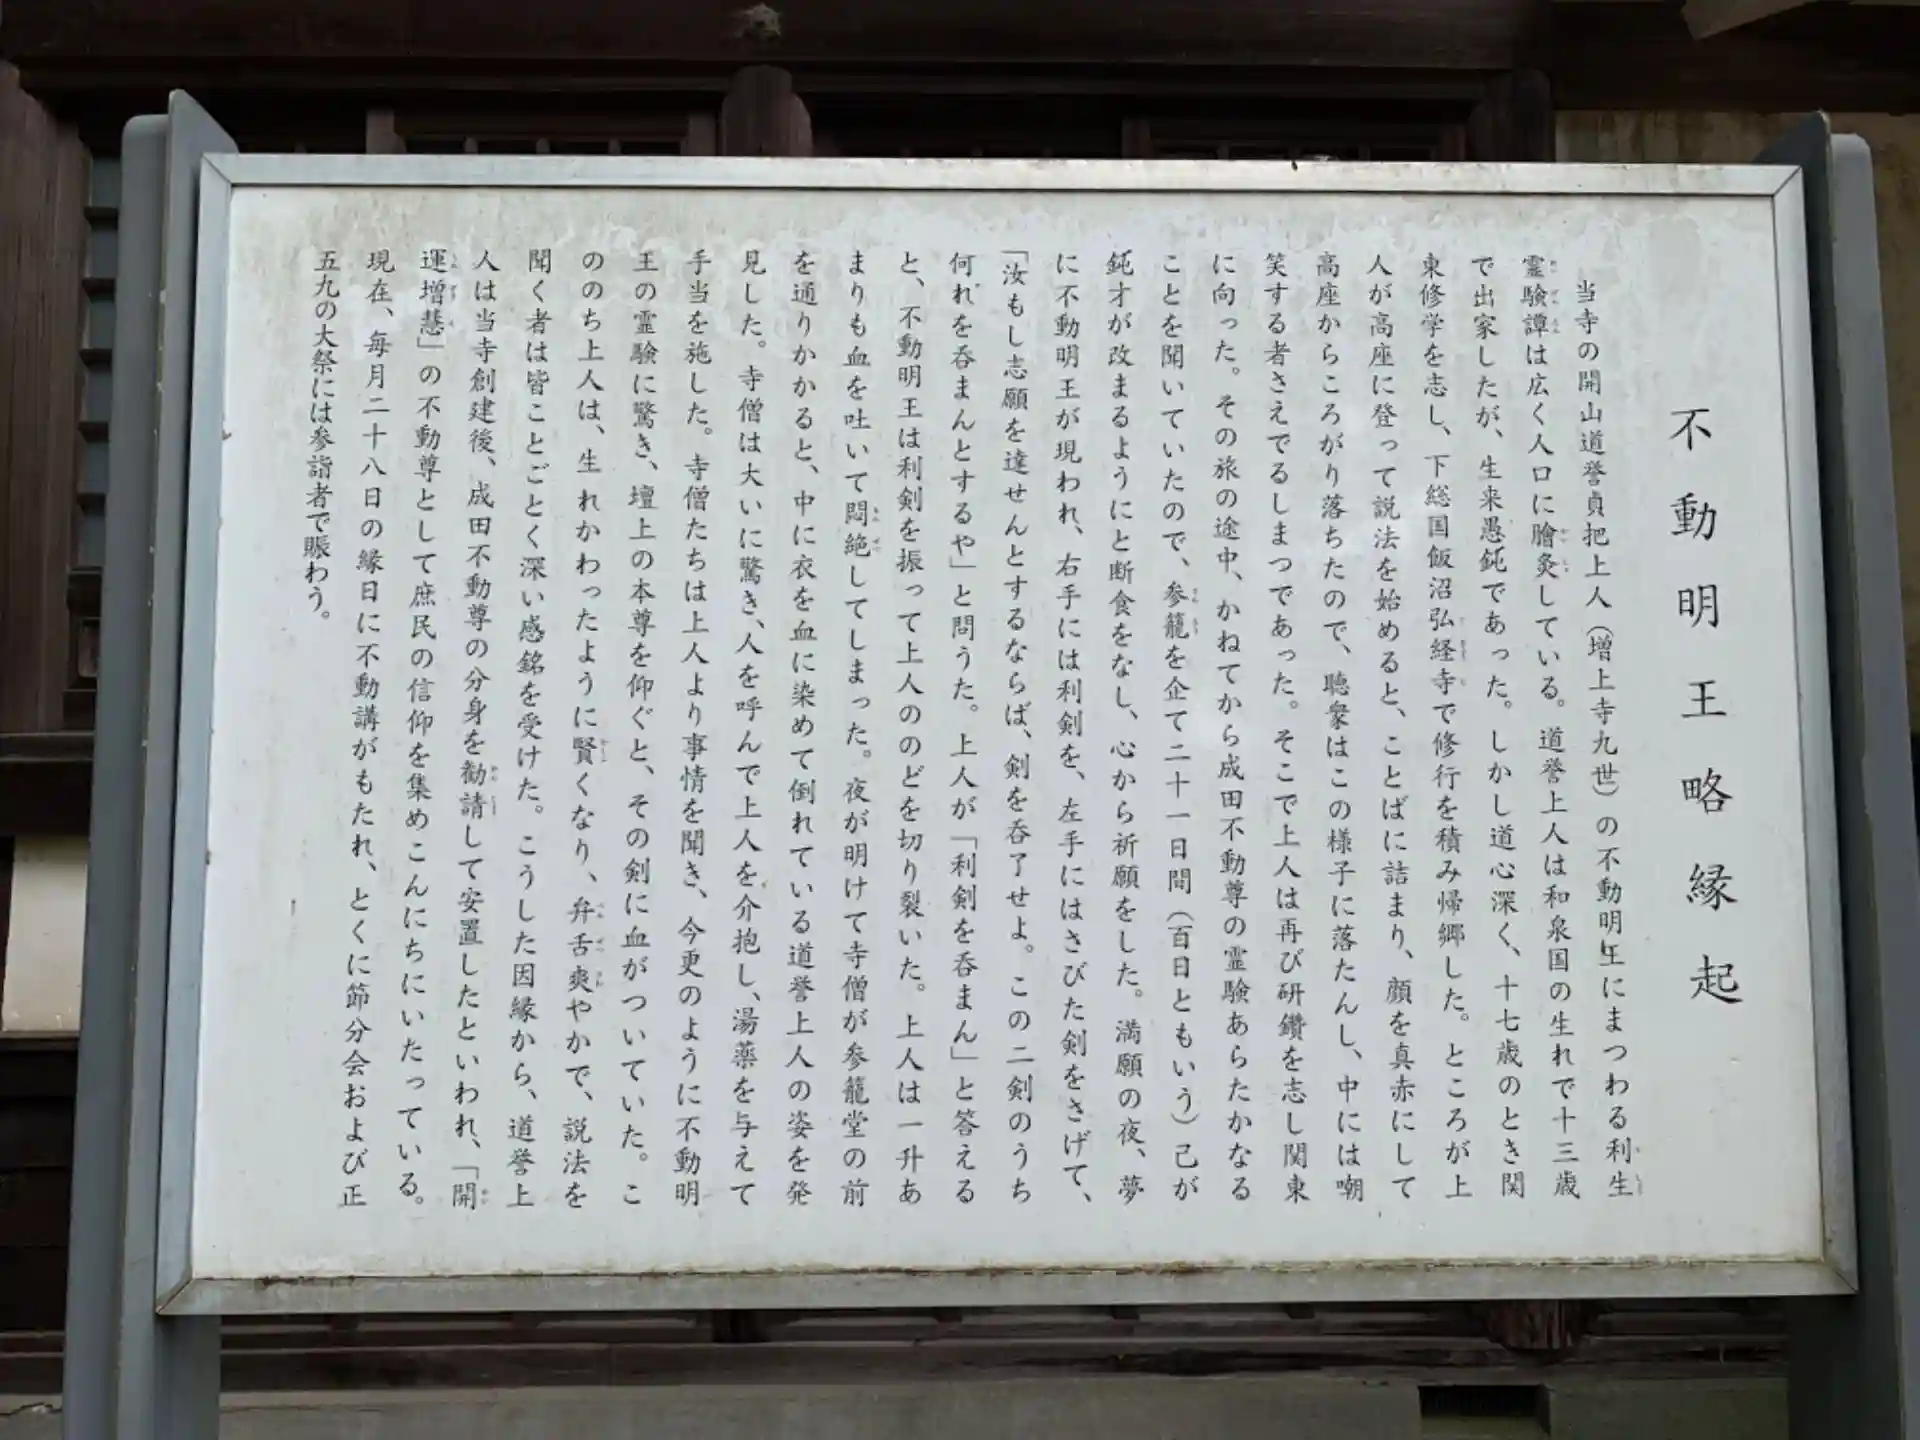 不動明王略縁起
当寺の開山道誉貞把上人(増上寺九世)の不動明王にまつわる利生
霊験譚は広く人口に膾炙している。道誉上人は和泉国の生れで十三歳
で出家したが、生来愚鈍であった。しかし道心深く、十七歳のとき関
東修学を志し、下総国飯沼弘経寺で修行を積み帰郷した。ところが上
人が高座に登って説法を始めると、ことばに詰まり、顔を真赤にして
高座からころがり落ちたので、聴衆はこの様子に落たんし、中には嘲
笑する者さえでるしまつであった。そこで上人は再び研鑽を志し関東
に向った。その旅の途中、かねてから成田不動尊の霊験あらたかなる
ことを聞いていたので、参籠を企て二十一日間(百日ともいう)己が
鈍才が改まるようにと断食をなし、心から祈願をした。満願の夜、夢
に不動明王が現われ、右手には利剣を、左手にはさびた剣をさげて、
「汝もし志願を達せんとするならば、剣を呑了せよ。この二剣のうち
何れを呑まんとするや」と問うた。上人が「利剣を呑まん」と答える
と、不動明王は利剣を振って上人ののどを切り裂いた。上人は一升あ
まりも血を吐いて悶絶してしまった。夜が明けて寺僧が参籠堂の前
を通りかかると、中に衣を血に染めて倒れている道誉上人の姿を発
見した。寺僧は大いに驚き、人を呼んで上人を介抱し、湯薬を与えて
手当を施した。寺僧たちは上人より事情を聞き、今更のように不動明
王の霊験に驚き、壇上の本尊を仰ぐと、その剣に血がついていた。こ
ののち上人は、生れかわったように賢くなり、弁舌爽やかで、説法を
聞く者は皆ことごとく深い感銘を受けた。こうした因縁から、道誉上
人は当寺創建後、成田不動尊の分身を勧請して安置したといわれ、「開
運増慧」の不動尊として庶民の信仰を集めこんにちにいたっている。
現在、毎月二十八日の縁日に不動講がもたれ、とくに節分会および正
五九の大祭には参詣者で賑わう。